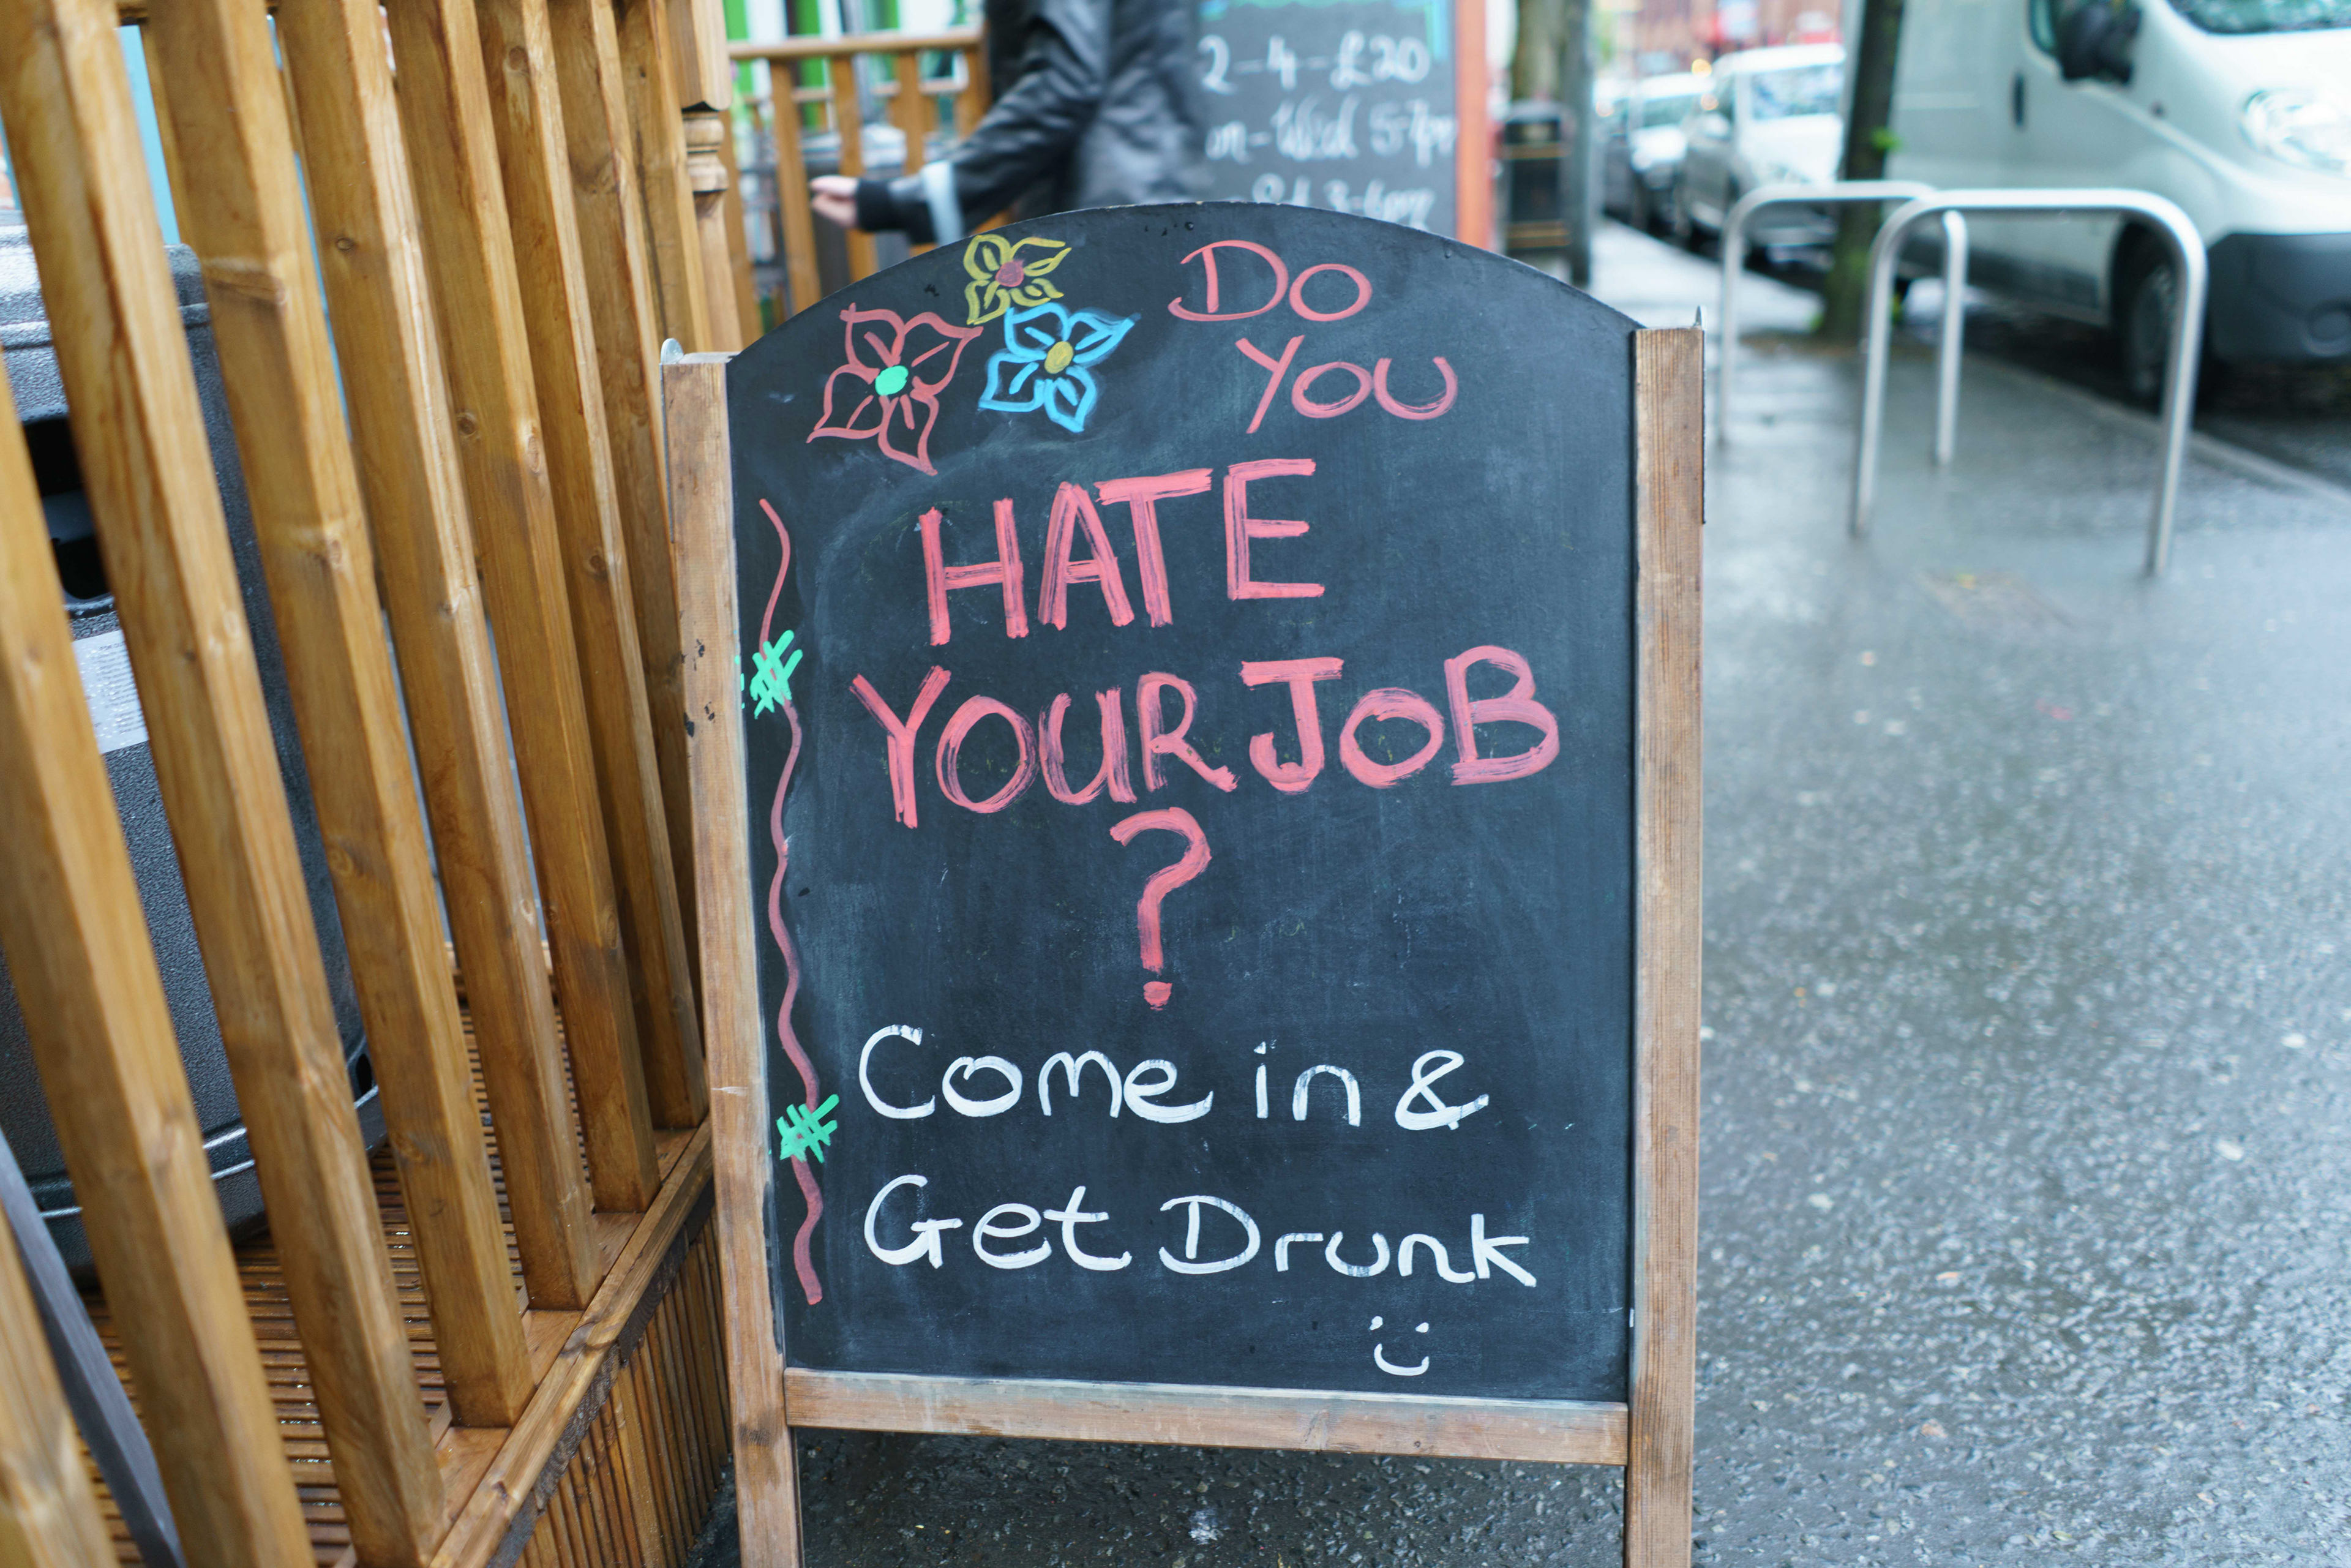 2-4-£20
Wed 5-7p
3-6pm
Do
You
HATE
YOUR JOB
?
Come in &
Get Drunk